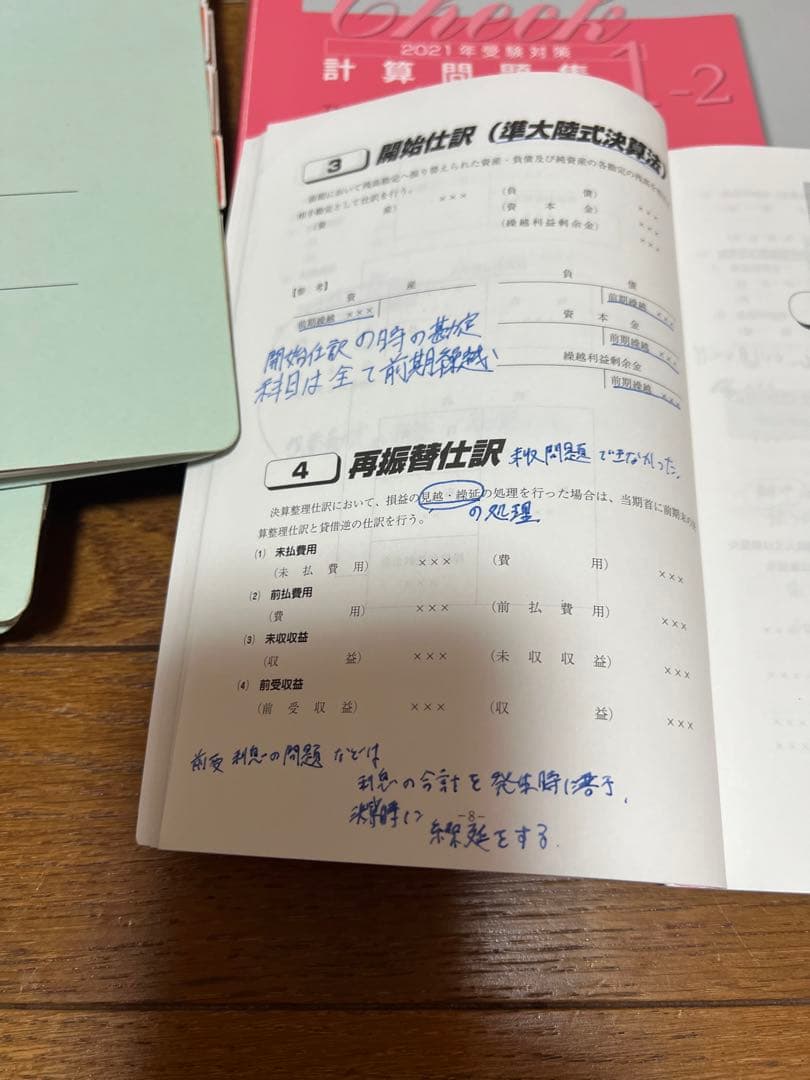 Check
2021年受験対策
計算問題集
1-2
3 開始仕訳（準大陸式決算法）
前期において残高勘定へ振り替えられた資産・負債及び純資産の各勘定の残高を
相手勘定として仕訳を行う。
(資 産) ××× (負 債) ×××
(資 本 金) ×××
(繰越利益剰余金) ×××
【参 考】
資 産
前期繰越 ×××
負 債
前期繰越 ×××
資 本 金
前期繰越 ×××
繰越利益剰余金
前期繰越 ×××
開始仕訳の時の勘定
科目は全て前期繰越
4 再振替仕訳 未収問題できなかった。
決算整理仕訳において、損益の見越・繰延の処理を行った場合は、当期首に前期末の
の処理
算整理仕訳と貸借逆の仕訳を行う。
(1) 未払費用
(未 払 費 用) ××× (費 用) ×××
(2) 前払費用
(費 用) ××× (前 払 費 用) ×××
(3) 未収収益
(収 益) ××× (未 収 収 益) ×××
(4) 前受収益
(前 受 収 益) ××× (収 益) ×××
前受利息の問題などは
利息の合計を発生時に
決算時に
繰延をする.
-8-